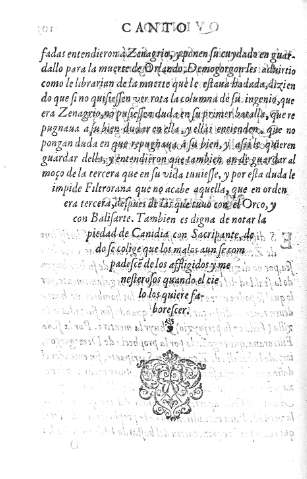 CANTO
fadas entendieron à Zenagrio, y ponen su cuydado en guar-
dallo para la muerte de Orlando. Demogorgon les aduirtio
como le librarian de la muerte que le estaua hadada, dizien
do que si no quisiessen ver rota la columna de su ingenio, que
era Zenagrio, no pusiessen duda en su primer batalla, que re
pugnaua a su bien dudar en ella, y ellas entienden que no
pongan duda en que repugnaua à su bien, y assi le quieren
guardar della, y entendieron que tambien an de guardar al
moço de la tercera que en su vida tuuiesse, y por esta duda le
impide Filtrorana que no acabe aquella, que en orden
era tercera, despues de las que tuuo con el Orco, y
con Balisarte. Tambien es digna de notar la
piedad de Canidia con Sacripante, de
do se colige que los malos aun se com
padescē de los affligidos y me
nesterosos quando el cie
lo los quiere fa-
borescer.